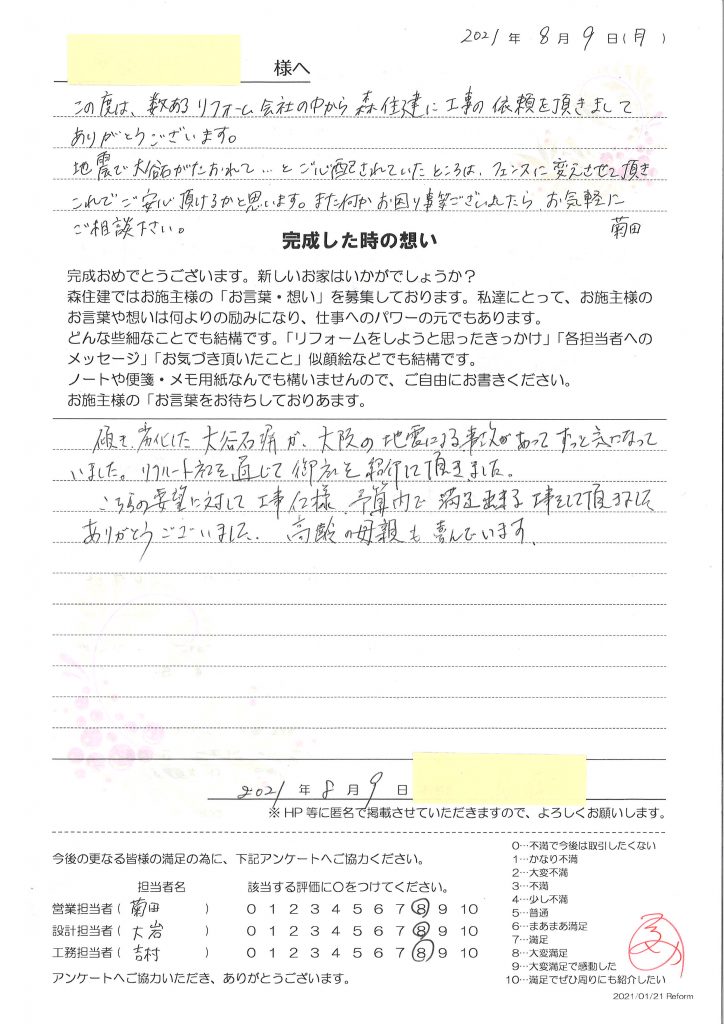 2021年 8月 9日(月)
様へ
この度は、数あるリフォーム会社の中から森住建に工事の依頼を頂きまして
ありがとうございます。
地震で大谷石がたおれて…とご心配されていたところは、フェンスに変えさせて頂き
これでご安心頂けるかと思います。また何かお困り事等ございましたらお気軽に
ご相談下さい。 菊田
完成した時の想い
完成おめでとうございます。新しいお家はいかがでしょうか？
森住建ではお施主様の「お言葉・想い」を募集しております。私達にとって、お施主様の
お言葉や想いは何よりの励みになり、仕事へのパワーの元でもあります。
どんな些細なことでも結構です。「リフォームをしようと思ったきっかけ」「各担当者への
メッセージ」「お気づき頂いたこと」似顔絵などでも結構です。
ノートや便箋・メモ用紙なんでも構いませんので、ご自由にお書きください。
お施主様の「お言葉をお待ちしておりあます。
傾き、劣化した大谷石塀が、大阪の地震による事故があってずっと気になって
いました。リクルート社を通じて御社を紹介して頂きました。
こちらの要望に対して工事仕様、予算内で満足出来る工事をして頂きました
ありがとうございました。高齢の母親も喜んでいます。
2021年 8月 9日
※HP等に匿名で掲載させていただきますので、よろしくお願いします。
今後の更なる皆様の満足の為に、下記アンケートへご協力ください。
担当者名 該当する評価に○をつけてください。
営業担当者( 菊田 ) 0 1 2 3 4 5 6 7 8 9 10
設計担当者( 大岩 ) 0 1 2 3 4 5 6 7 8 9 10
工務担当者( 吉村 ) 0 1 2 3 4 5 6 7 8 9 10
アンケートへご協力いただき、ありがとうございます。
0…不満で今後は取引したくない
1…かなり不満
2…大変不満
3…不満
4…少し不満
5…普通
6…まあまあ満足
7…満足
8…大変満足
9…大変満足で感動した
10…満足でぜひ周りにも紹介したい
2021/01/21 Reform